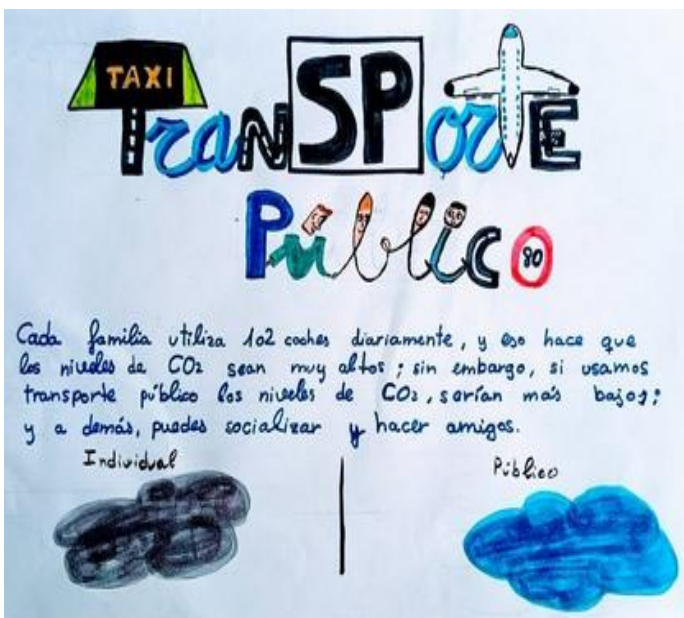 TAXI
TranSPorTE
Público
80
Cada familia utiliza 1o2 coches diariamente, y eso hace que
los niveles de CO2 sean muy altos; sin embargo, si usamos
transporte público los niveles de CO2, serían más bajos;
y a demás, puedes socializar y hacer amigos.
Individual
Público